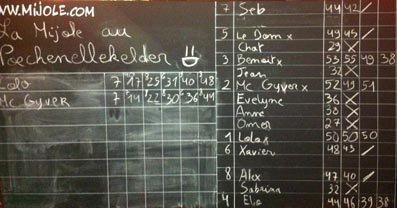 WWW.MIJOLE.COM
La Mijole au
Poechenellekelder
Lolo 7 17 25 31 40 48
Mc Gyver 7 14 22 30 36 44
7 Seb 44 42 /
5 Le Dom x 49 45 /
Chat 29 x
3 Benoit x 53 55 49 38
Jean 32 x
2 Mc Gyver x 52 49 51
Evelyne 36 x
Anne 38 x
Omer 27 x
1 Lolo x 50 50 50
6 Xavier 48 43 /
8 Alex 47 40 /
Sabrina 32 x
4 Elo 44 46 39 38